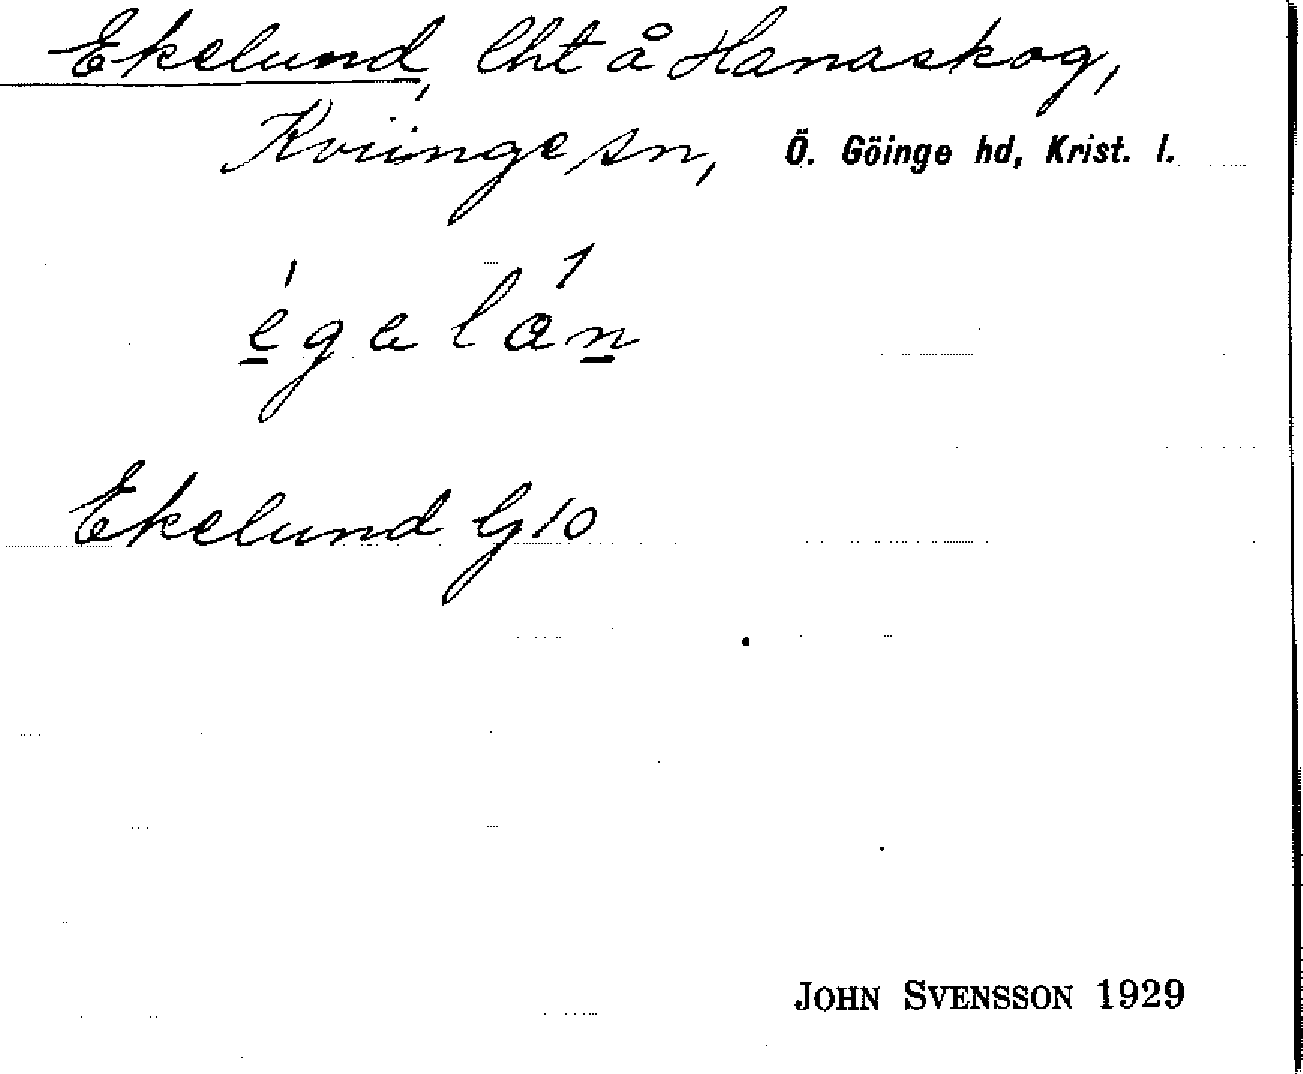 Ekelund, lht å Hanaskog,
Kviinge sn, Ö. Göinge hd, Krist. l.
égalán
Ekelund G 10
JOHN SVENSSON 1929